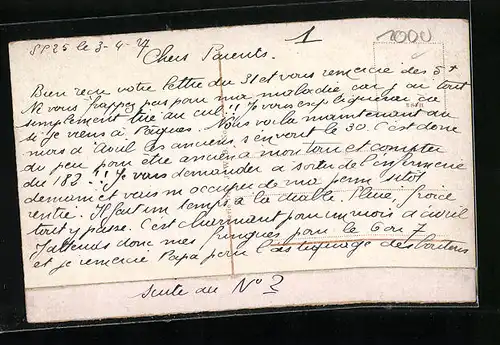 SP25 le 3-4-27
1
1000
Chers Parents.
Bien reçu votre lettre du 31 et vous remercie des 5f
Ne vous frappez pas pour ma maladie car j'ai tout
simplement tiré au cul!! Je vous expliquerai ca
si je viens à Pâques. Nous voila maintenant au
mois d'Avril les anciens s'en vont le 30. C'est donc
du peu pour être ancien à mon tour et compter
du 182!! Je vais demander a sortir de l'infirmerie
demain et vais m'occuper de ma perm sitôt
rentré. Il fait un temps à la diable. Pluie, froid
tout y passe. C'est charmant pour un mois d'avril
J'attends donc mes fringues pour le 6 ou 7
et je remercie Papa pour l'astiquage des boutons
suite au No 2